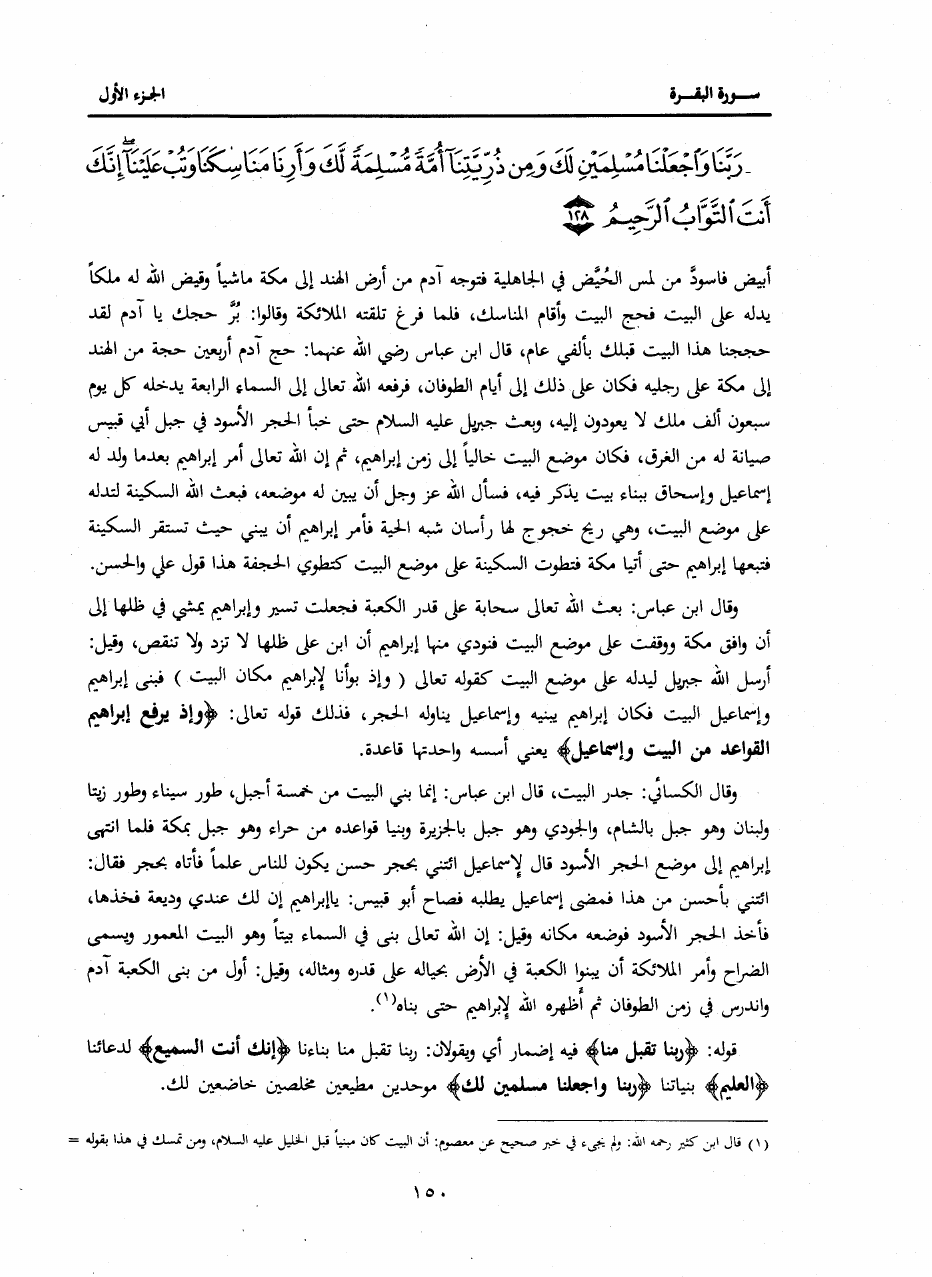 سـورة البقـرة
الجزء الأول
رَبَّنَا وَٱجْعَلْنَا مُسْلِمَيْنِ لَكَ وَمِن ذُرِّيَّتِنَآ أُمَّةً مُّسْلِمَةً لَّكَ وَأَرِنَا مَنَاسِكَنَا وَتُبْ عَلَيْنَآ ۖ إِنَّكَ
أَنتَ ٱلتَّوَّابُ ٱلرَّحِيمُ ١٢٨
أبيض فاسودَّ من لمس الحُيَّض في الجاهلية فتوجه آدم من أرض الهند إلى مكة ماشياً وقيض الله له ملكاً
يدله على البيت فحج البيت وأقام المناسك، فلما فرغ تلقته الملائكة وقالوا: بُرَّ حجك يا آدم لقد
حججنا هذا البيت قبلك بألفي عام، قال ابن عباس رضي الله عنهما: حج آدم أربعين حجة من الهند
إلى مكة على رجليه فكان على ذلك إلى أيام الطوفان، فرفعه الله تعالى إلى السماء الرابعة يدخله كل يوم
سبعون ألف ملك لا يعودون إليه، وبعث جبريل عليه السلام حتى خبأ الحجر الأسود في جبل أبي قبيس
صيانة له من الغرق، فكان موضع البيت خالياً إلى زمن إبراهيم، ثم إن الله تعالى أمر إبراهيم بعدما ولد له
إسماعيل وإسحاق ببناء بيت يذكر فيه، فسأل الله عز وجل أن يبين له موضعه، فبعث الله السكينة لتدله
على موضع البيت، وهي ريح خجوج لها رأسان شبه الحية فأمر إبراهيم أن يبني حيث تستقر السكينة
فتبعها إبراهيم حتى أتيا مكة فتطوت السكينة على موضع البيت كتطوي الحجفة هذا قول علي والحسن.
وقال ابن عباس: بعث الله تعالى سحابة على قدر الكعبة فجعلت تسير وإبراهيم يمشي في ظلها إلى
أن وافق مكة ووقفت على موضع البيت فنودي منها إبراهيم أن ابن على ظلها لا تزد ولا تنقص، وقيل:
أرسل الله جبريل ليدله على موضع البيت كقوله تعالى ( وإذ بوأنا لإبراهيم مكان البيت ) فبنى إبراهيم
وإسماعيل البيت فكان إبراهيم يبنيه وإسماعيل يناوله الحجر، فذلك قوله تعالى: ﴿وإذ يرفع إبراهيم
القواعد من البيت وإسماعيل﴾ يعني أسسه واحدتها قاعدة.
وقال الكسائي: جدر البيت، قال ابن عباس: إنما بني البيت من خمسة أجبل، طور سيناء وطور زيتا
ولبنان وهو جبل بالشام، والجودي وهو جبل بالجزيرة وبنيا قواعده من حراء وهو جبل بمكة فلما انتهى
إبراهيم إلى موضع الحجر الأسود قال لإسماعيل ائتني بحجر حسن يكون للناس علماً فأتاه بحجر فقال:
ائتني بأحسن من هذا فمضى إسماعيل يطلبه فصاح أبو قبيس: ياإبراهيم إن لك عندي وديعة فخذها،
فأخذ الحجر الأسود فوضعه مكانه وقيل: إن الله تعالى بنى في السماء بيتاً وهو البيت المعمور ويسمى
الضراح وأمر الملائكة أن يبنوا الكعبة في الأرض بحياله على قدره ومثاله، وقيل: أول من بنى الكعبة آدم
واندرس في زمن الطوفان ثم أظهره الله لإبراهيم حتى بناه(١).
قوله: ﴿ربنا تقبل منا﴾ فيه إضمار أي ويقولان: ربنا تقبل منا بناءنا ﴿إنك أنت السميع﴾ لدعائنا
﴿العليم﴾ بنياتنا ﴿ربنا واجعلنا مسلمين لك﴾ موحدين مطيعين مخلصين خاضعين لك.
(١) قال ابن كثير رحمه الله: ولم يجىء في خبر صحيح عن معصوم: أن البيت كان مبنياً قبل الخليل عليه السلام، ومن تمسك في هذا بقوله =
١٥٠